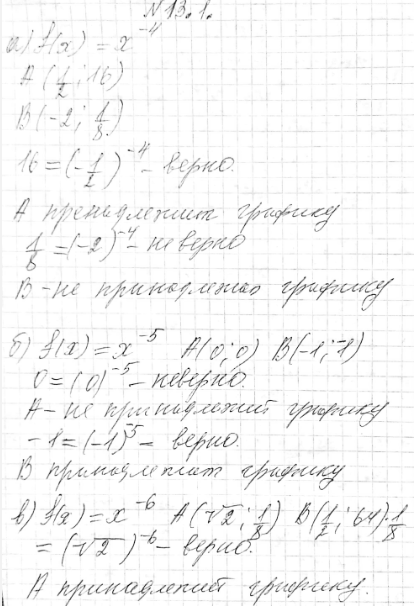 N 13.1.
а) f(x) = x^-4
A (1/2; 16)
B (-2; 1/8)
16 = (-1/2)^-4 - верно.
А пренадлежит графику
1/8 = (-2)^-4 - неверно
В - не принадлежат графику
б) f(x) = x^-5 A(0; 0) B(-1; -1)
0 = (0)^-5 - неверно.
А - не принадлежит графику
-1 = (-1)^-5 - верно.
В принадлежит графику
в) f(x) = x^-6 A(√2; 1/8) B(1/2; 64) · 1/8
= (√2)^-6 - верно.
А принадлежит графику.